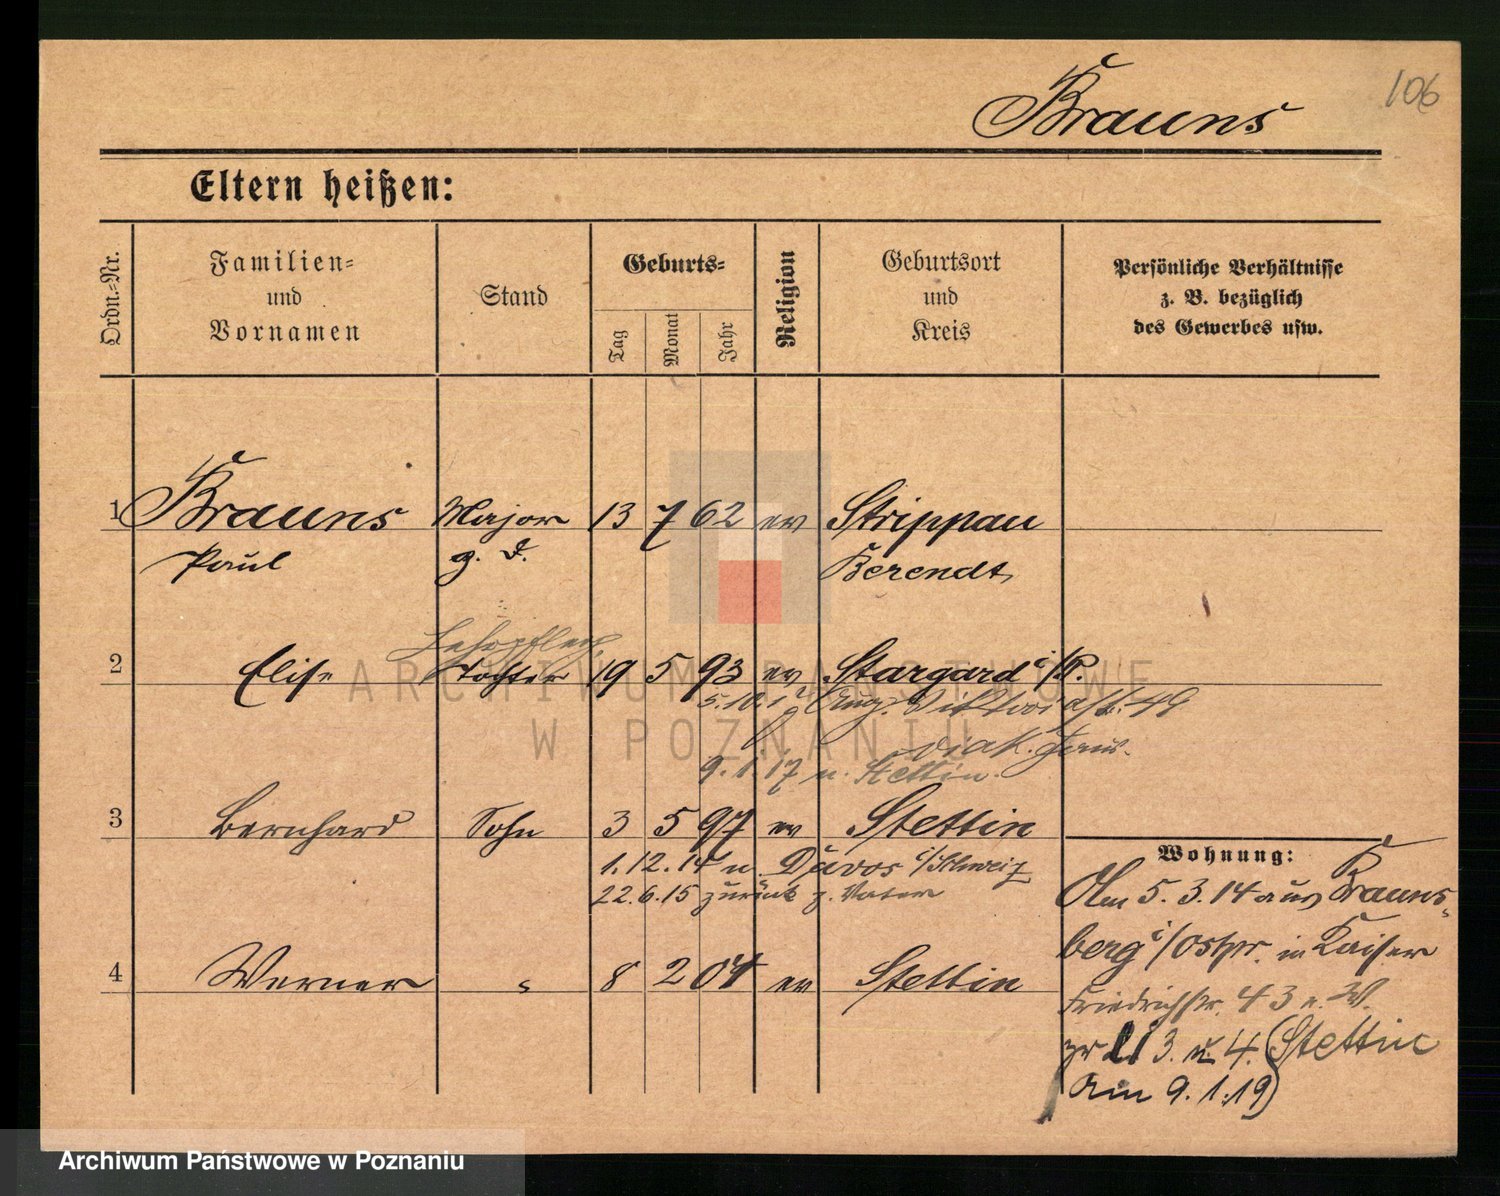 106
Brauns
Eltern heißen:
Ordn.-Nr.
Familien-
und
Vornamen
Stand
Geburts-
Tag
Monat
Jahr
Religion
Geburtsort
und
Kreis
Persönliche Verhältnisse
z. B. bezüglich
des Gewerbes usw.
1 Brauns Major 13 7 62 ev Strippau
Paul z. D. Berendt
2 Elise Tochter 19 5 93 ev Stargard i/P.
5.10.1 Aug. Viktoriastr. 49
diak.
9.1.17 n. Stettin.
3 Bernhard Sohn 3 5 97 ev Stettin
1.12.14 n. Davos i/Schweiz
22.6.15 zurück z. Vater
4 Werner " 8 2 04 ev Stettin
Wohnung:
Am 5.3.14 aus Brauns-
berg i/Ostpr. in Kaiser
Friedrichstr. 43 n. W.
3. u. 4. (Stettin
am 9.1.19)
ARCHIWUM PAŃSTWOWE
W POZNANIU
Archiwum Państwowe w Poznaniu